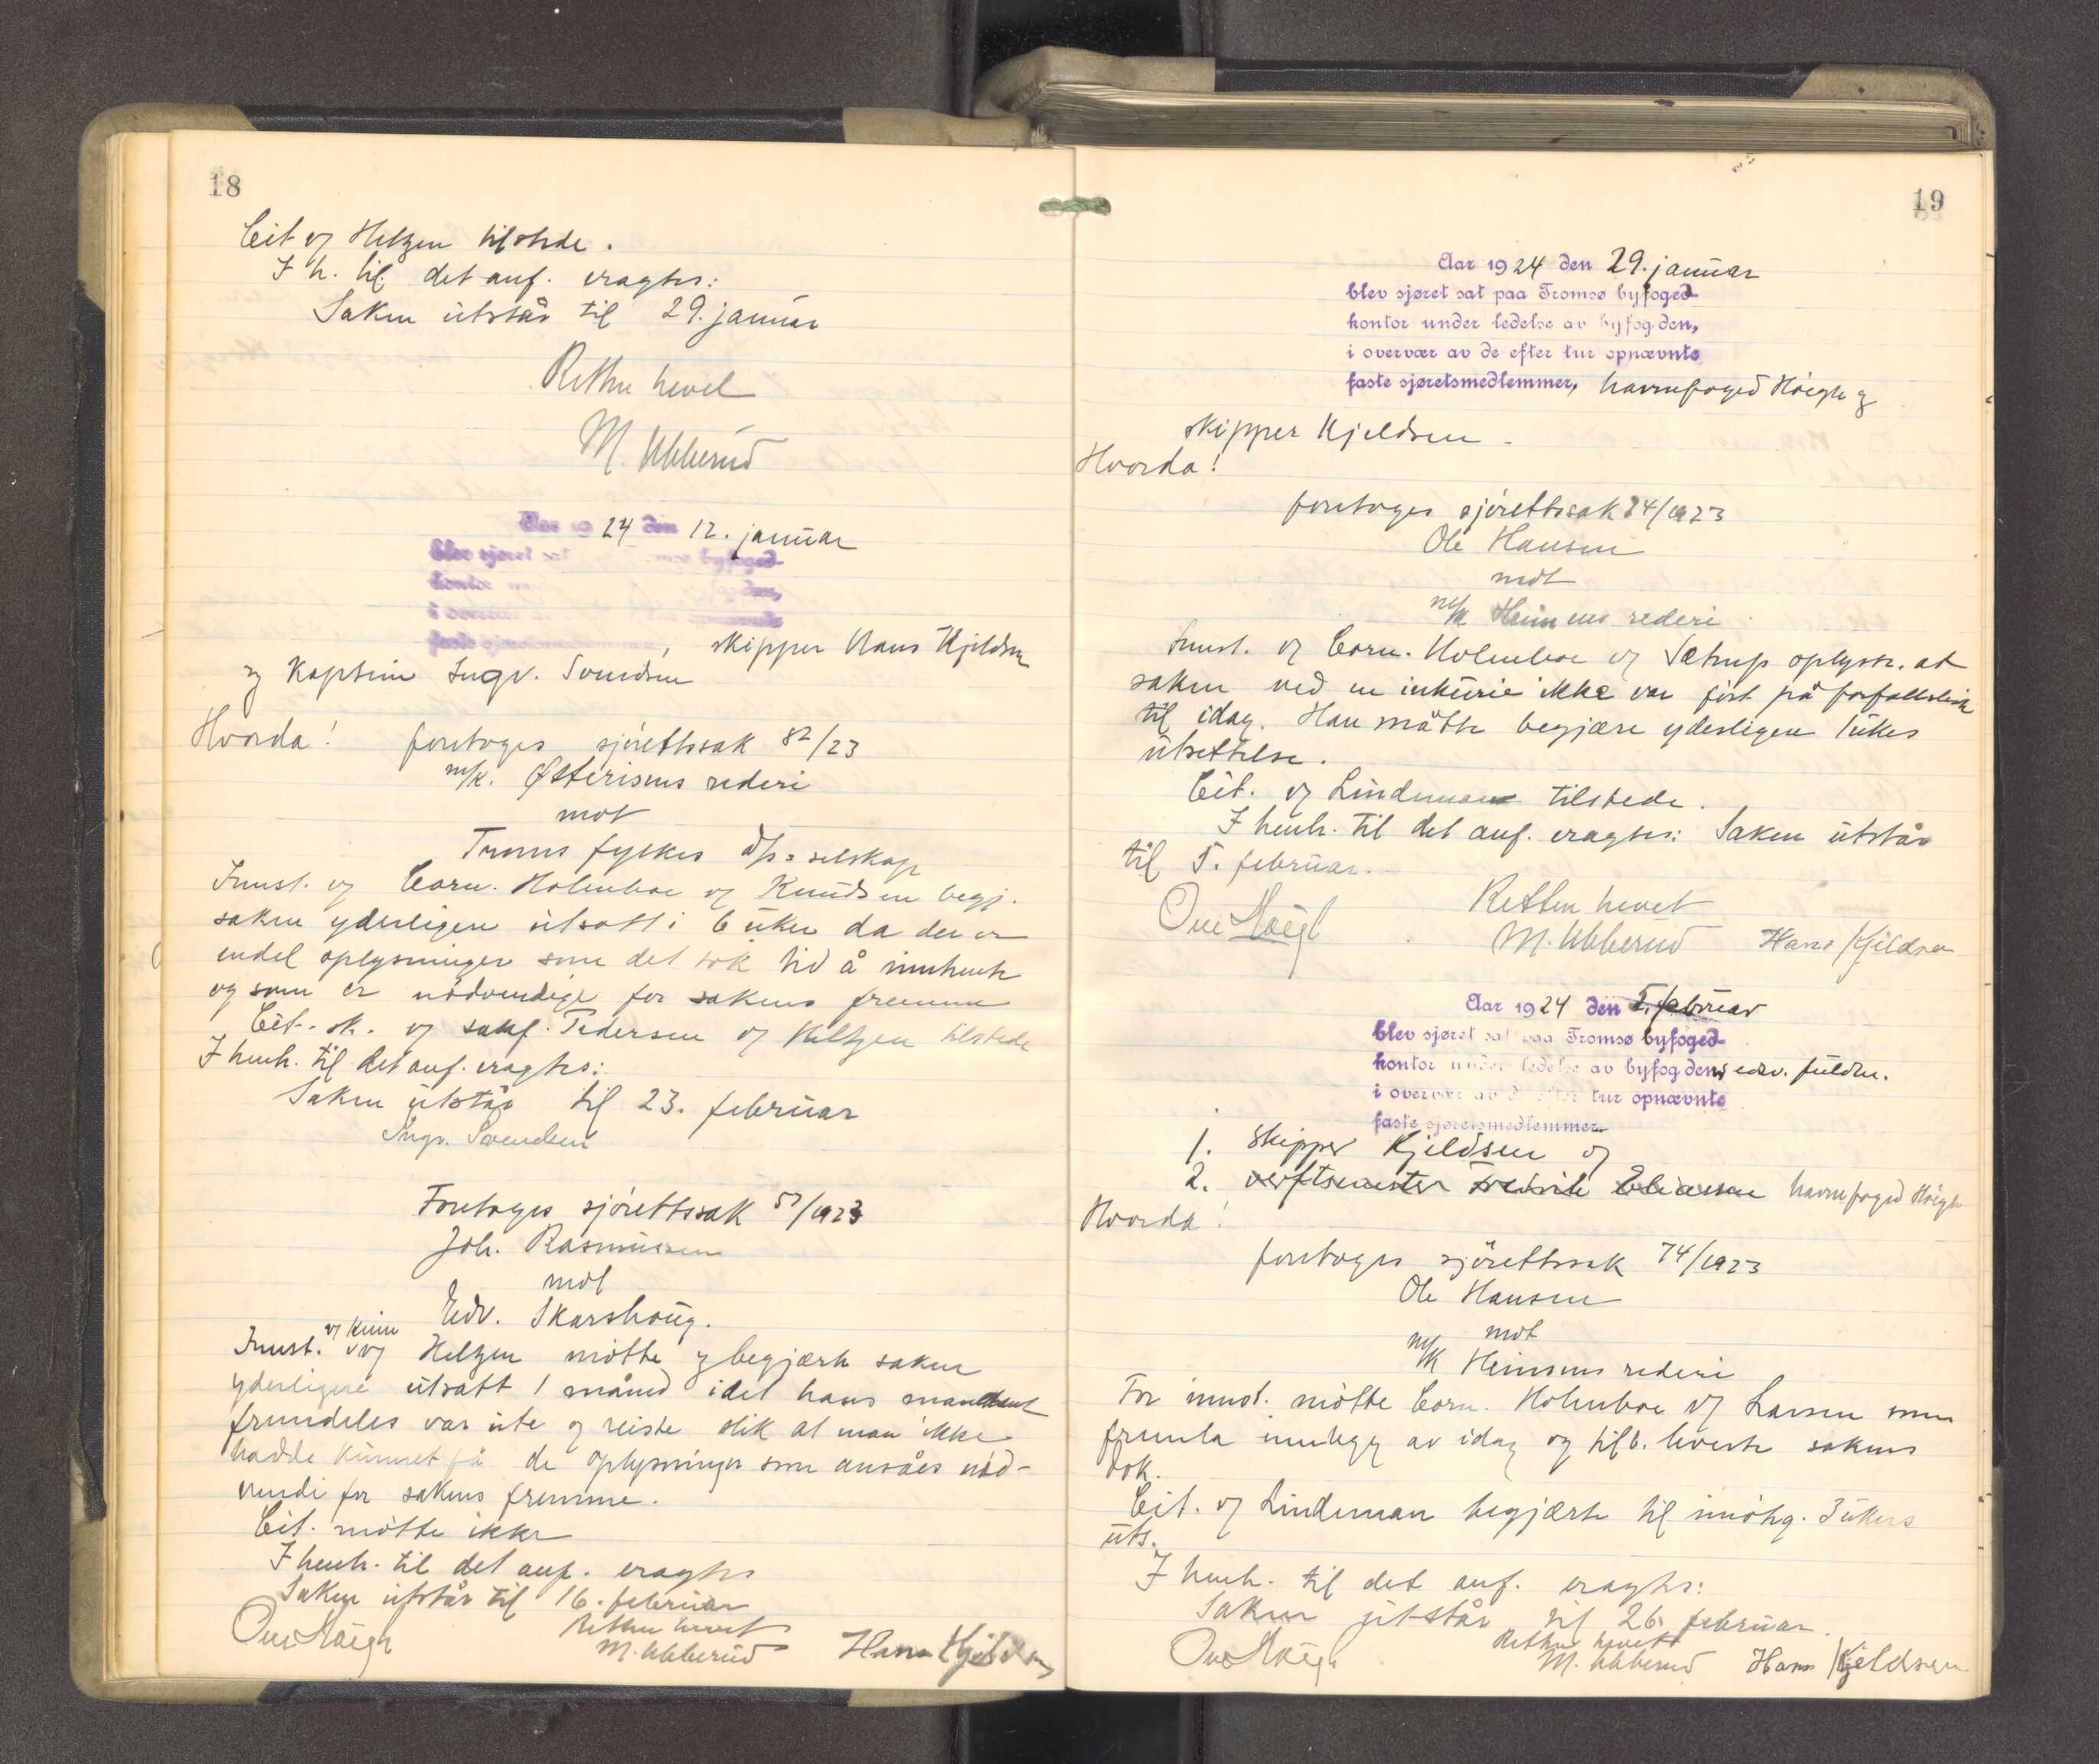 18
Cit. og Heltzen tilstede.
I h. til det anf. eragtes:
Saken utstår til 29. januar
Retten hevet
M. Ubberud
Aar 1924 den 12. januar
blev sjøret sat byfoged-
kontor den,
i overvær opnævnte
faste sjøretsmedlemmer, skipper Hans Kjeldsen
og Kaptein Ingv. Svendsen
Hvorda! foretoges sjørettssak 82/23
m/k. Østerisens rederi
mot
Troms fylkes d/s-selskap
Innst. og Corn. Holmboe og Knudsen begj.
saken yderligere utsatt i 6 uker da der er
endel oplysninger som det tok tid å innhente
og som er nødvendige for sakens fremme
Cit. og Pedersen og Heltzen tilstede
I henh. til det anf. eragtes:
Saken utstår til 23. februar
Ingv. Svendsen
Foretoges sjørettssak 57/1923
Joh. Rasmussen
mot
Edv. Skarshoug.
Innst. og Heltzen møtte og begjærte saken
yderligere utsatt 1 måned idet hans mandant
fremdeles var ute og reiste slik at man ikke
hadde kunnet få de oplysninger som ansåes nød-
vendi for sakens fremme.
Cit. møtte ikke
I henh. til det anf. eragtes
Saken utstår til 16. februar
Retten hevet
Ove Høegh M. Ubberud Hans Kjeldsen
19
Aar 1924 den 29. januar
blev sjøret sat paa Tromsø byfoged-
kontor under ledelse av byfogden,
i overvær av de efter tur opnævnte
faste sjøretsmedlemmer, havnefoged Høegh og
skipper Kjeldsen.
Hvorda!
foretoges sjørettssak 74/1923
Ole Hansen
mot
m/k Heimens rederi
Innst. og Corn. Holmboe og Sætrup oplyste, at
saken ved en inkurie ikke var ført på forfallsliste
til idag. Han måtte begjære yderligere 1 ukes
utsettelse.
Cit. og Lindeman tilstede.
I henh. til det anf. eragtes: Saken utstår
til 5. februar.
Retten hevet
Ove Høegh M. Ubberud Hans Kjeldsen
Aar 1924 den 5. februar
blev sjøret sat paa Tromsø byfoged-
kontor under ledelse av byfogden, fuldm.
i overvær av de efter tur opnævnte
faste sjøretsmedlemmer.
1. Skipper Kjeldsen og
2. verftsmester Fredrik Eliassen havnefoged Høegh
Hvorda!
foretoges sjørettssak 74/1923
Ole Hansen
mot
m/k Heimens rederi
For innst. møtte Corn. Holmboe og Larsen som
fremla innlegg av idag og tilb. leverte sakens
dok.
Cit. og Lindeman begjærte til imøtg. 3 ukers
uts.
I henh. til det anf. eragtes:
Saken utstår til 26. februar.
Retten hevet
Ove Høegh M. Ubberud Hans Kjeldsen